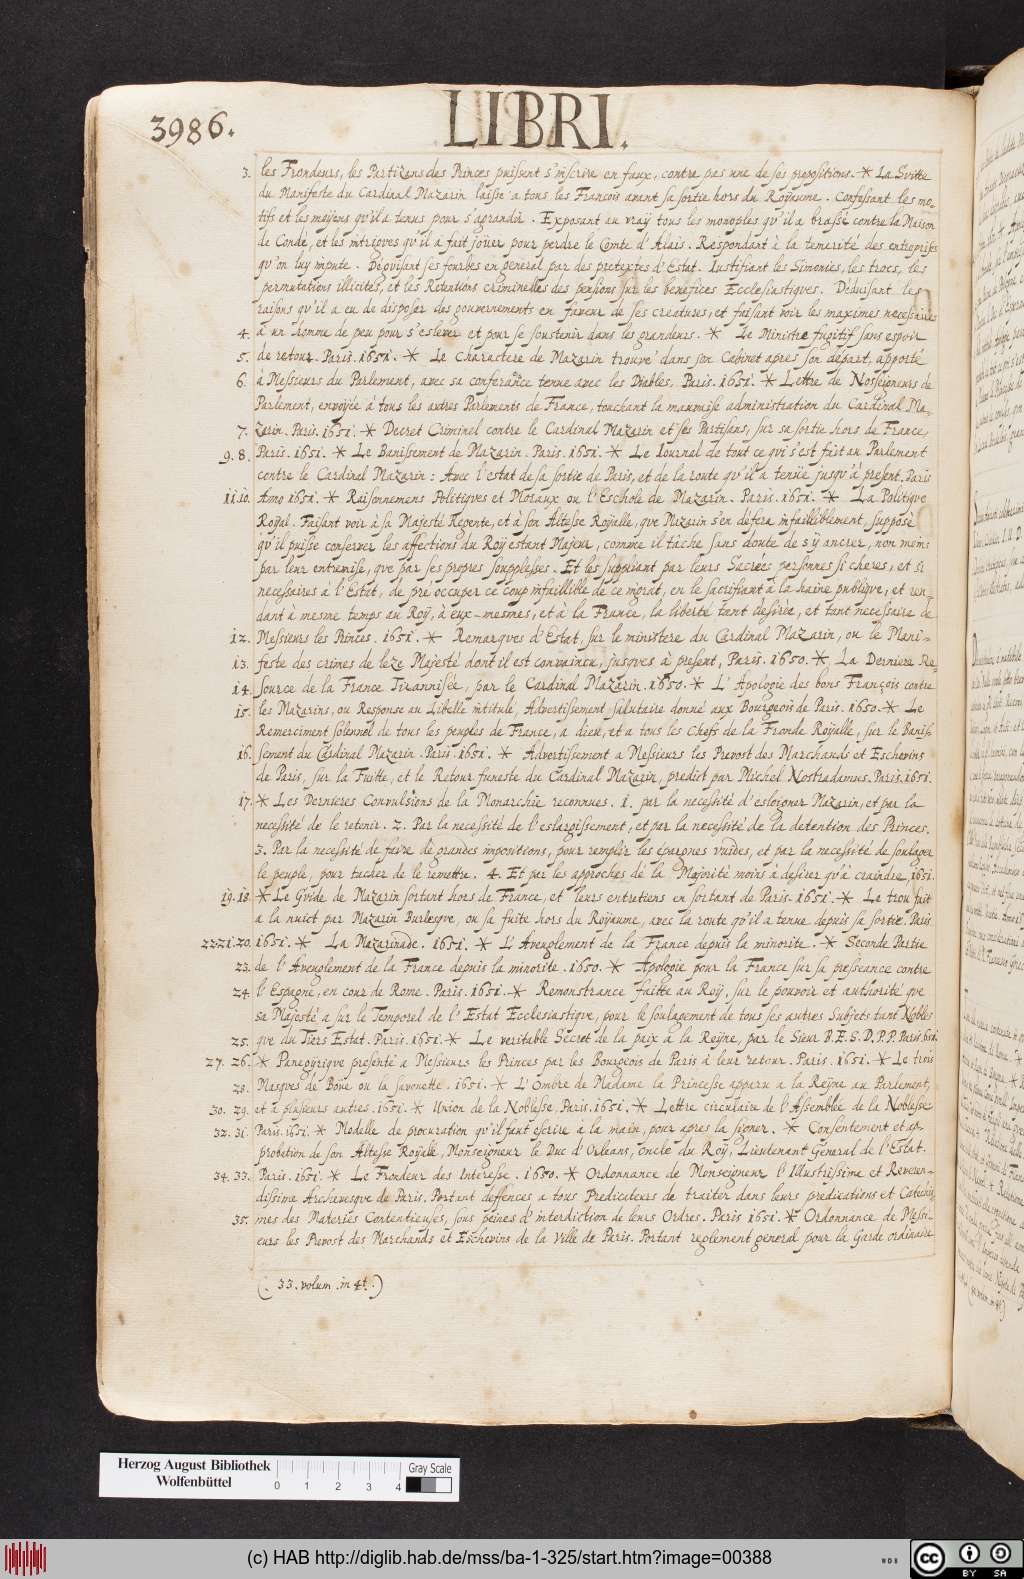 3986.
LIBRI.
3. les Frondeurs, les Partizans des Princes puissent s'inscrire en faux, contre pas une de ses propositions. * La Svitte
du Manifeste du Cardinal Mazarin laissé a tous les François avant sa sortie hors du Royaume. Confessant les mo-
tifs et les moÿens qu'il a tenus pour s'agrandir. Exposant au vraÿ tous les monoples qu'il a brassé contre la Maison
de Condé, et les intrigves qu'il a fait joüer pour perdre le Comte d'Alais. Respondant à la temerité des entreprises
qv'on luy impute. Déguisant ses fourbes en general par des pretextes d'Estat. Iustifiant les Simonies, les trocs, les
permutations illicites, et les Retentions criminelles des pensions sur les benefices Ecclesiastiqves. Déduisant les
raisons qu'il a eu de disposer des gouvernements en faveur de ses creatures, et faisant voir les maximes necessaires
4. a un homme de peu pour s'eslever et pour se soustenir dans les grandeurs. * Le Ministre fugitif sans espoir
5. de retour. Paris. 1651. * Le Charactere de Mazarin trouvé dans son Cabinet apres son départ, apporté
6. à Messieurs du Parlement, avec sa conferance tenue avec les Diables, Paris. 1651. * Lettre de Nosseigneurs de
Parlement, envoyée à tous les autres Parlements de France, touchant la mauvaise administration du Cardinal Ma-
7. zarin. Paris. 1651. * Decret Criminel contre le Cardinal Mazarin et ses Partisans, sur sa sortie hors de France,
9. 8. Paris. 1651. * Le Banissement de Mazarin. Paris. 1651. * Le Iournal de tout ce qvi s'est fait au Parlement
contre le Cardinel Mazarin: Avec l'estat de sa sortie de Paris, et de la route qv'il a tenüe jusqv'à present. Paris
11. 10. Anno 1651. * Raisonnemens Politiqves et Moraux ou l'Eschole de Mazarin. Paris. 1651. * La Politiqve
Royal. Faisant voir à sa Majesté Regente, et à son Altesse Royalle, qve Mazarin s'en défera infailliblement, supposé
qv'il puisse conserver les affections du Roy estant Majeur, comme il tâche sans doute de s'ÿ ancrer, non moins
par leur entremise, qve par ses propres soupplesses. Et les suppliant par leurs Sacrées personnes si cheres, et si
necessaires à l'Estat, de pré occuper ce coup infaillible de ce ingrat, en le sacrifiant à la haine publiqve, et ren-
dant à mesme temps au Roÿ, à eux-mesmes, et à la France, la liberté tant désirée, et tant necessaire de
12. Messieurs les Princes. 1651. * Remarqves d'Estat, sur le ministere du Cardinal Mazarin, ou le Mani-
13. feste des crimes de leze Majesté dont il est convaincu, jusqves à present, Paris. 1650. * La Derniere Re-
14. source de la France Tirannisée, par le Cardinal Mazarin. 1650. * L'Apologie des bons François contre
15. les Mazarins, ou Response au Libelle intitulé, Advertissement salutaire donné aux Bourgeois de Paris. 1650. * Le
Remerciment solennel de tous les peuples de France, a dieu, et a tous les Chefs de la Fronde Royalle, sur le Banis-
16. sement du Cardinal Mazarin. Paris. 1651. * Advertissement a Messieurs les Prevost des Marchands et Eschevins
de Paris, sur la Fuitte, et le Retour funeste du Cardinal Mazarin, predict par Michel Nostradamus. Paris. 1651.
17. * Les Dernieres Convulsions de la Monarchie reconnues. 1. par la necessité d'esloigner Mazarin, et par la
necessité de le retenir. 2. Par la necessité de l'eslargissement, et par la necessité de la detention des Princes.
3. Par la necessité de faire de grandes impositions, pour remplir les épargnes vuides, et par la necessité de soulager
le peuple, pour tacher de le remettre. 4. Et par les approches de la Majorité moins à desirer qv'à craindre, 1651.
19. 18. * Le Gvide de Mazarin sortant hors de France, et leurs entretiens en sortant de Paris. 1651. * Le trou fait
a la nuict par Mazarin Burlesqve, ou sa fuite hors du Royaume, avec la route qv'il a tenue depuis sa sortie. Paris
22. 21. 20. 1651. * La Mazarinade. 1651. * L'Aveuglement de la France depuis la minorite. * Seconde Partie
23. de l'Aveuglement de la France depuis la minorite. 1650. * Apologie pour la France sur sa presseance contre
24. l'Espagne, en cour de Rome. Paris. 1651. * Remonstrance faitte au Roÿ, sur le pouvoir et authorité qve
sa Majesté a sur le Temporel de l'Estat Ecclesiastiqve, pour le soulagement de tous ses autres Subjets tant Nobles
25. qve du Tiers Estat. Paris. 1651. * Le veritable Secret de la paix à la Reÿne, par le Sieur P.E.S.D.P.P. Paris. 1651.
27. 26. * Panegÿriqve presenté a Messieurs les Princes par les Bourgeois de Paris à leur retour. Paris. 1651. * Le trois
28. Masqves de Boüe ou la savonette. 1651. * L'Ombre de Madame la Princesse apparu a la Reÿne au Parlement,
30. 29. et a plusieurs autres. 1651. * Union de la Noblesse, Paris. 1651. * Lettre circulaire de l'Assemblée de la Noblesse
32. 31. Paris. 1651. * Modelle de procuration qv'il faut escrire à la main, pour apres la signer. * Consentement et ap-
probation de son Altesse Royalle, Monseigneur le Duc d'Orleans, Oncle du Roy, Lieutenant General de l'Estat.
34. 33. Paris. 1651. * Le Frondeur des Interesse. 1650. * Ordonnance de Monseigneur l'Illustrissime et Reveren-
dissime Archevesque de Paris. Portant deffences a tous Predicateurs de traiter dans leurs predications et Catechis-
35. mes des Materies Contentieuses, sous peines d'interdiction de leurs Ordres. Paris 1651. * Ordonnance de Messi-
eurs les Prevost des Marchands et Eschevins de la Ville de Paris. Portant reglement general pour la Garde ordinaire
(. 33. volum. in 4t.)
Herzog August Bibliothek
Wolfenbüttel
0 1 2 3 4
Gray Scale
(c) HAB http://diglib.hab.de/mss/ba-1-325/start.htm?image=00388
WDB
cc BY SA